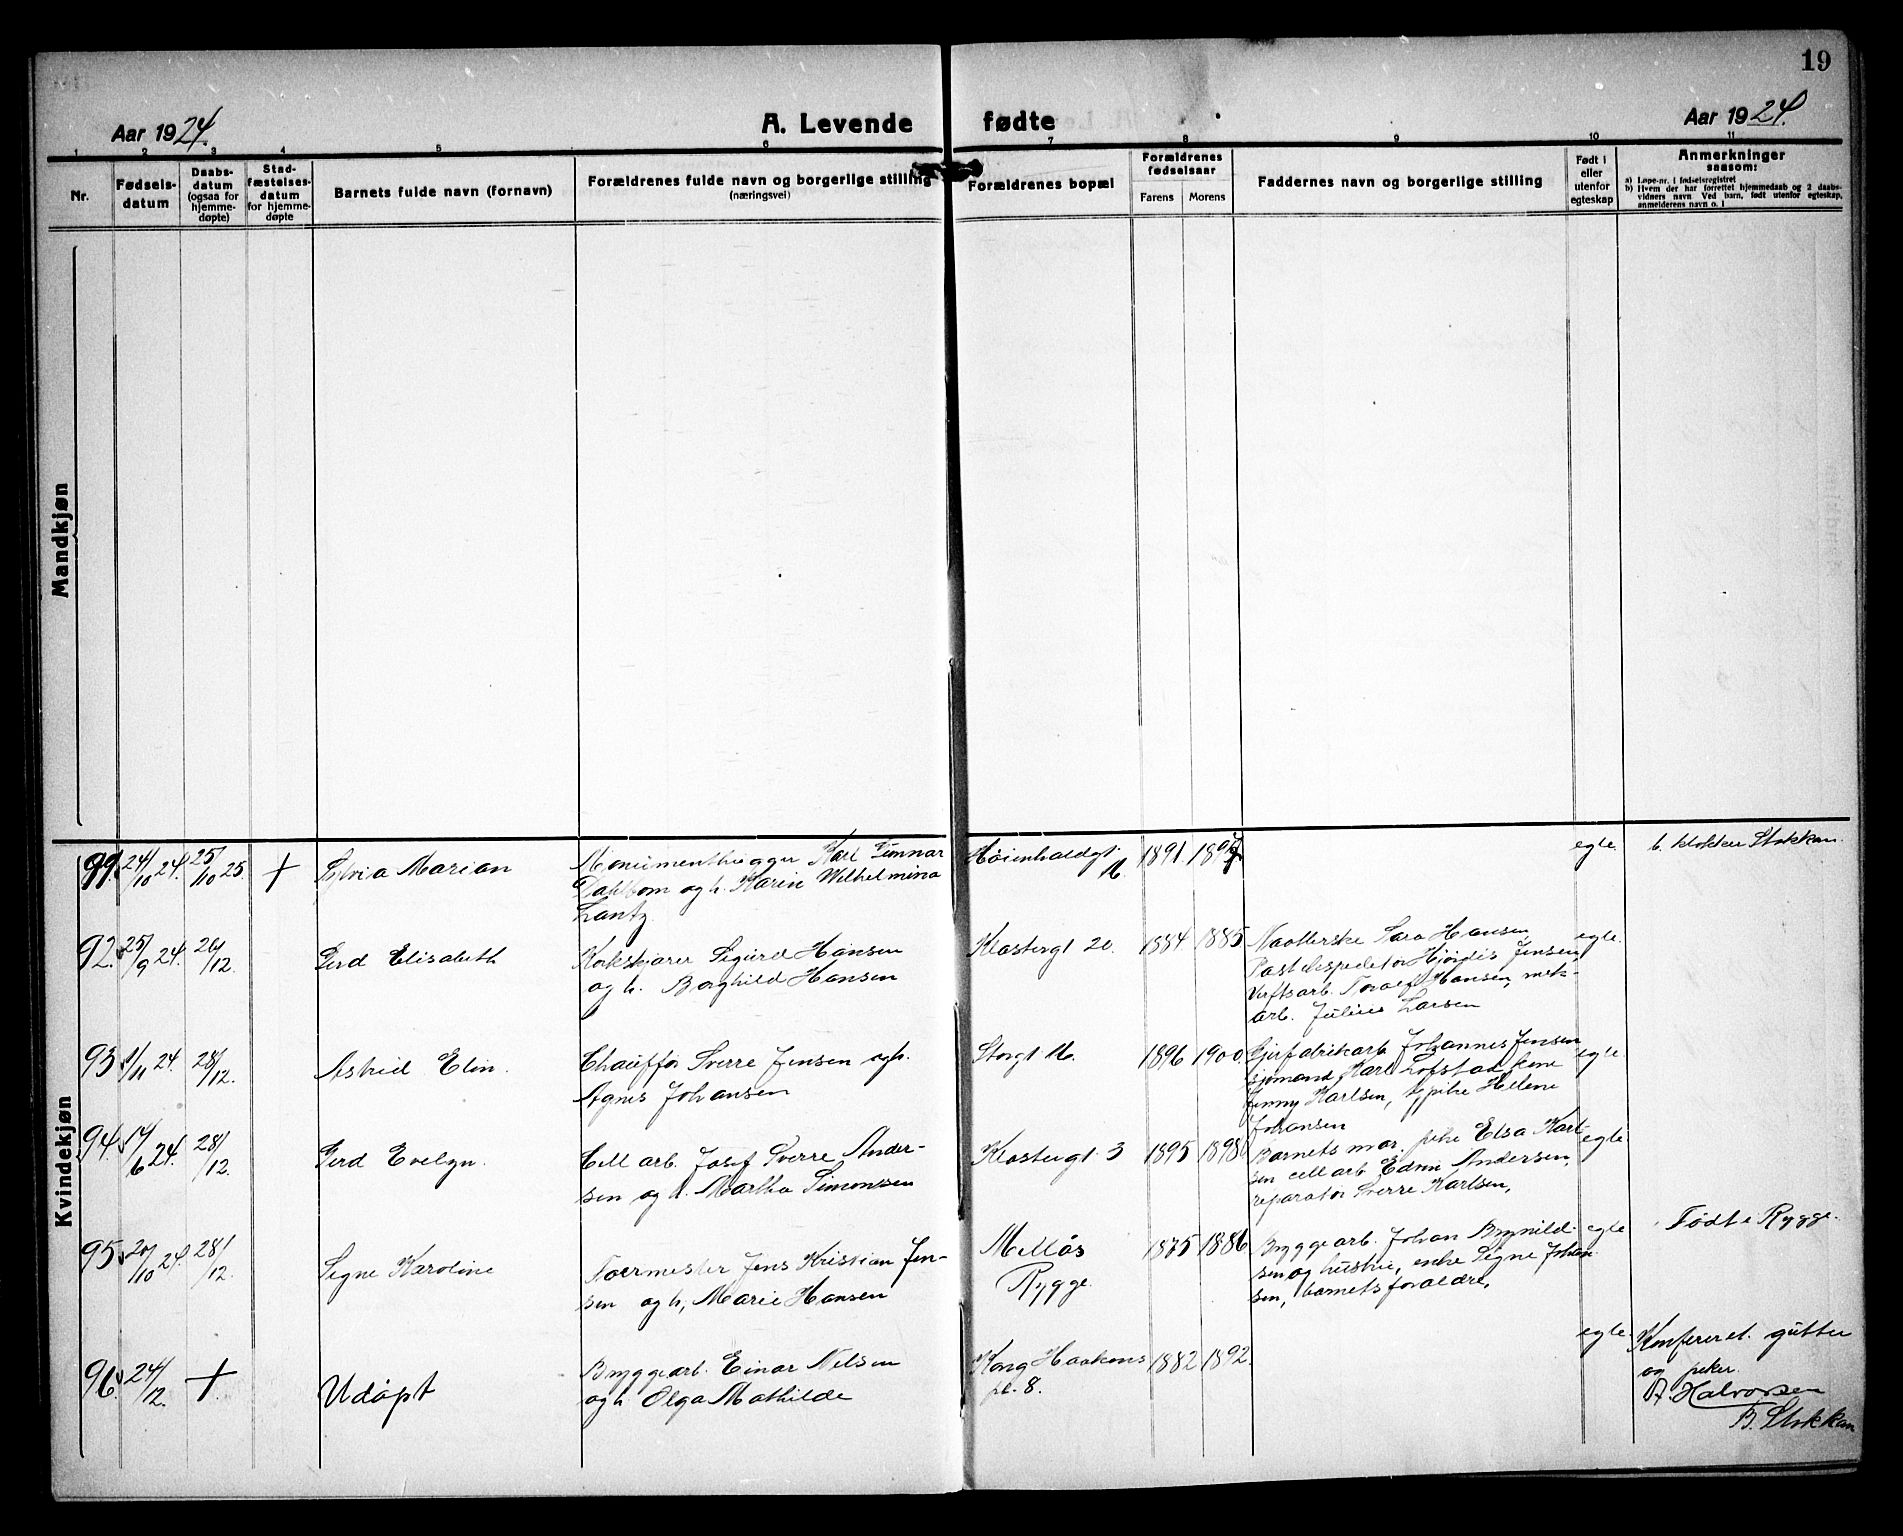 19
Aar 1924.
A. Levende fødte
Aar 1924.
1 2 3 4 5 6 7 8 9 10 11
Nr.
Fødsels-
datum
Daabs-
datum
(ogsaa for
hjemme-
døpte)
Stad-
fæstelses-
datum
for hjemme-
døpte
Barnets fulde navn (fornavn)
Forældrenes fulde navn og borgerlige stilling
(næringsvei)
Forældrenes bopæl
Forældrenes
fødselsaar
Farens Morens
Faddernes navn og borgerlige stilling
Født i
eller
utenfor
egteskap
Anmerkninger
saasom:
a) Løpe-nr. i fødselsregistret
b) Hvem der har forrettet hjemmedaab og 2 daabs-
vidners navn Ved barn, født utenfor egteskap,
anmelderens navn o. l
Mandkjøn
Kvindekjøn
91. 24/10 24. 25/10 25. + Sylvia Marian
Monumenthugger Karl Gunnar
Dahlbom og h. Karin Wilhelmina
Lantz
Høienhaldgt.
16.
1891
egte
v. klokker Stokkan.
92. 25/9 24. 26/12. Gerd Elisabeth
Korkskjærer Sigurd Hansen
og h. Borghild Hansen
Klostergt 20. 1884 1885
Naatlerske Sara Hansen,
Postekspeditør Hjørdis Jensen,
Verftsarb. Toralf Hansen, mek-
arb. Julius Larsen
egte.
93 1/11 24. 28/12. Astrid Elin.
Chauffør Sverre Jensen og h.
Agnes Johansen
Storgt 16. 1896 1900.
Johannes Jensen
sjømand Karl Lofstad, frue
Jenny Karlsen, pike Helene
Johansen
egte.
94. 14/6 24. 28/12. Gerd Evelyn.
Cell arb. Josef Sverre Ander-
sen og h. Martha Simonsen
Klostergt 3 1895 1898
Barnets mor, pike Elsa Karl-
sen cell arb Edvin Andersen,
reparatør Sverre Karlsen,
egte.
95 20/10 24. 28/12. Signe Karoline
Formester Jens Kristian Jen-
sen og h, Marie Hansen
Melløs
Rygge.
1875 1886
Byggearb. Johan Brynild-
sen og hustru, enke Signe Johan-
sen, barnets forældre,
egte
Født i Rygge.
96. 24/12. + Udøpt
Byggearb. Einar Nilsen
og h. Olga Mathilde
Kong Haakons
pl. 8.
1882 1892.
egte.
Konfereret. gutter
og piker.
A. Halvorsen
B. Stokkan